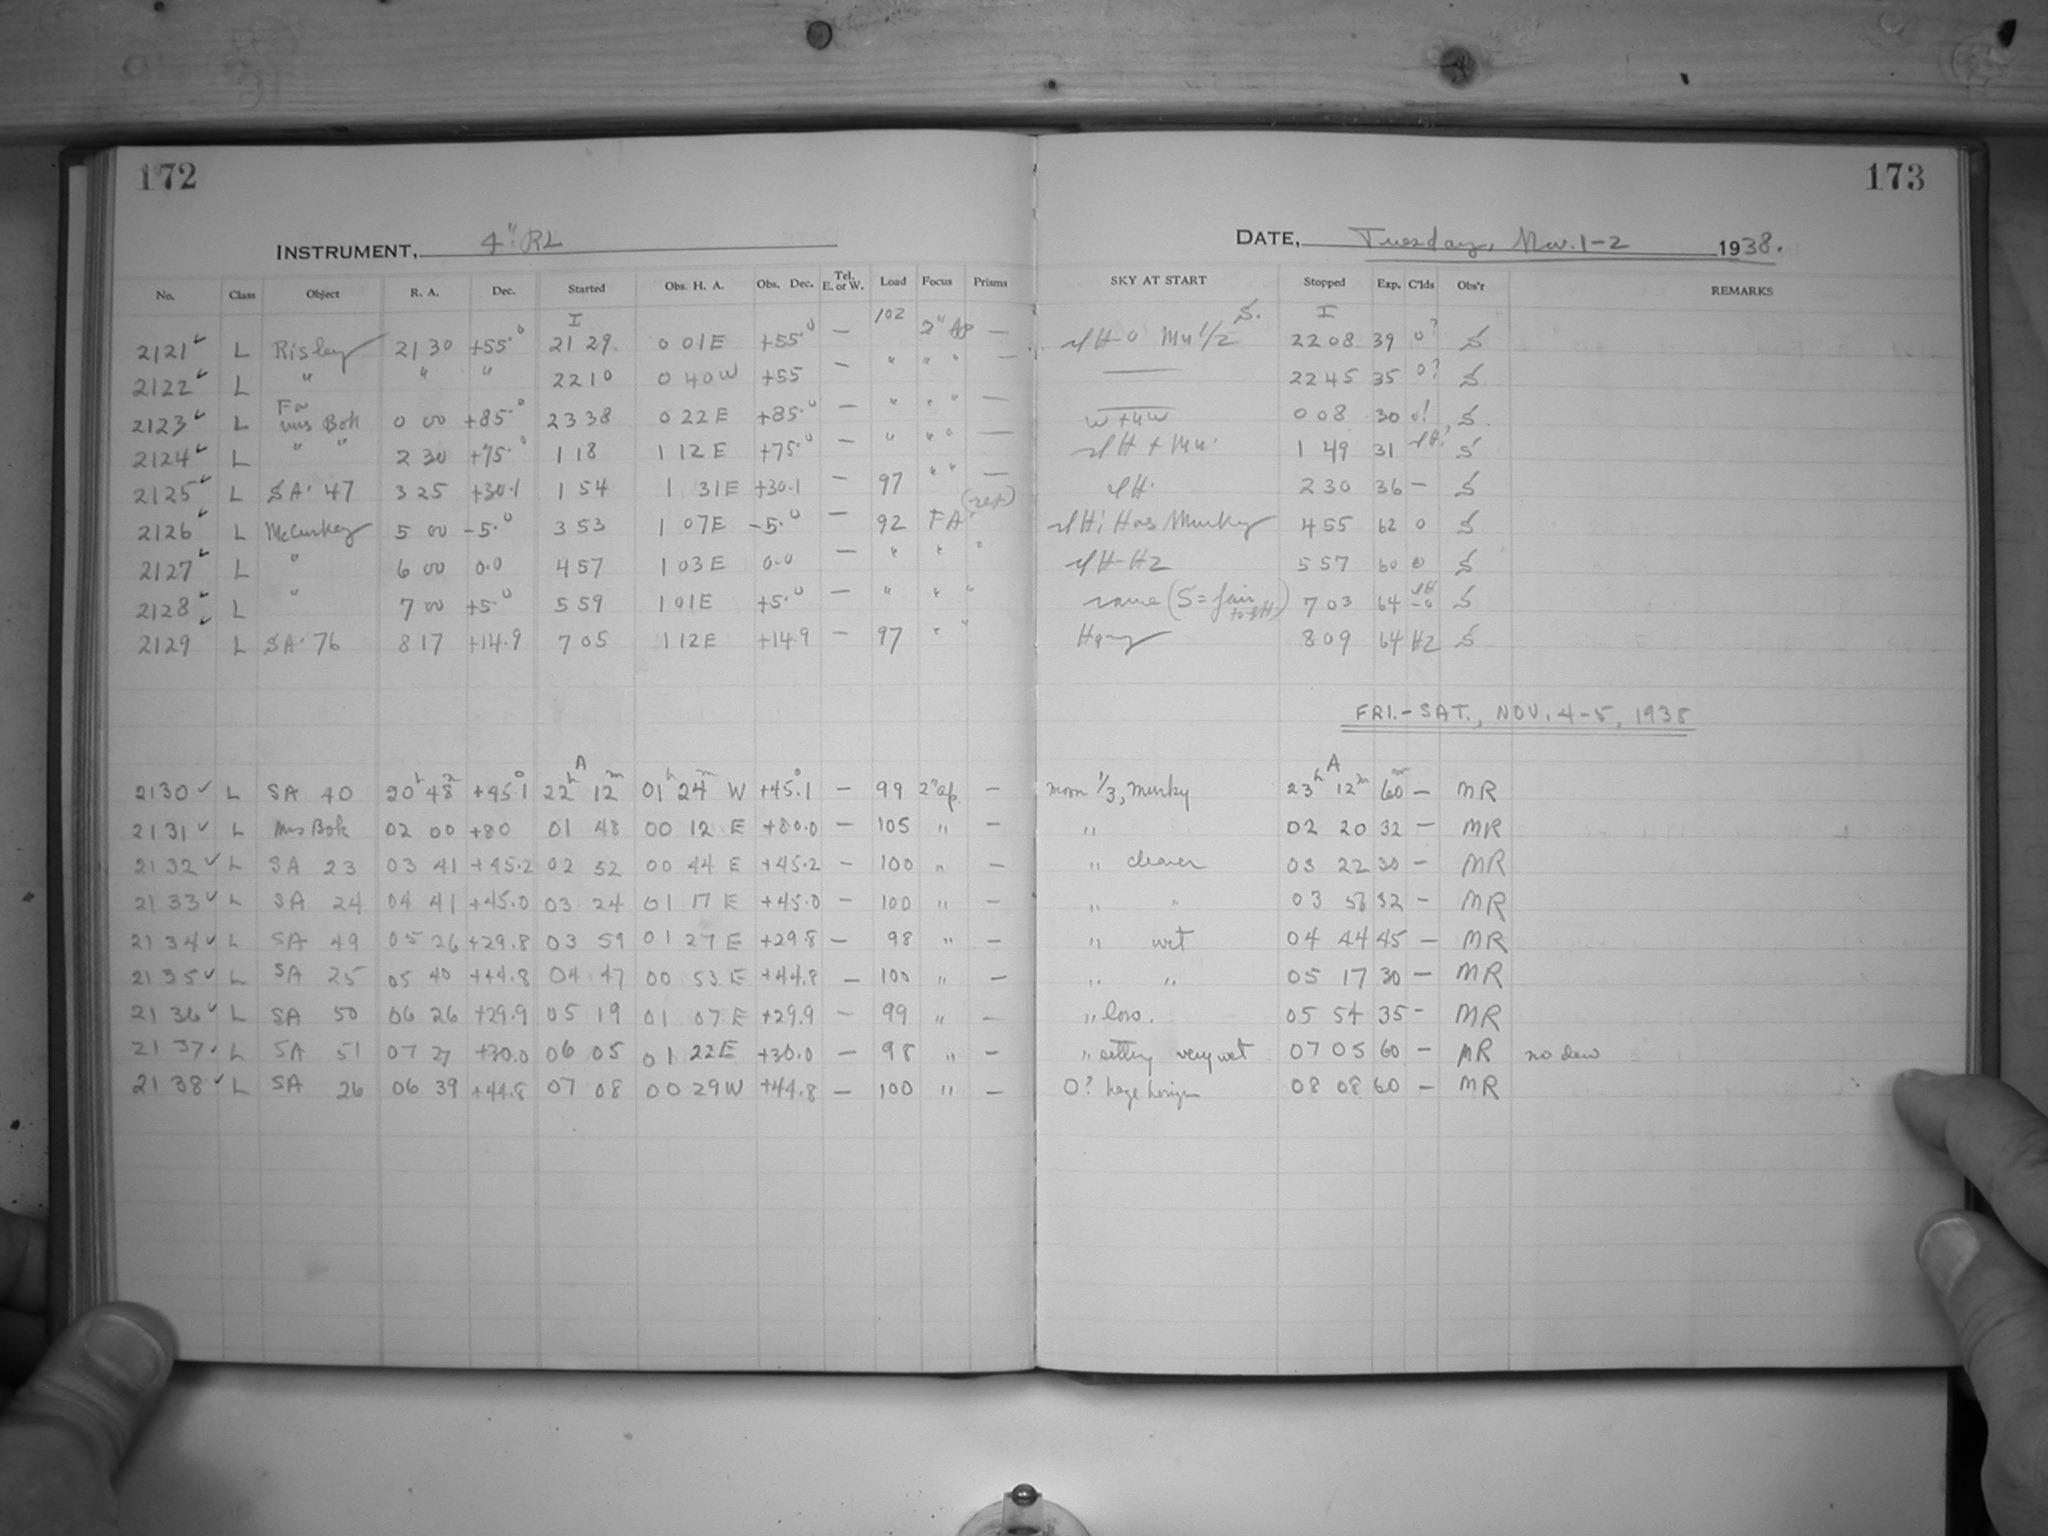 172
173
INSTRUMENT, 4" RL
DATE, Tuesday, Nov. 1-2 1938.
No. Class Object R. A. Dec. Started Obs. H. A. Obs. Dec. Tel. E. or W. Load Focus Prisms SKY AT START Stopped Exp. C'lds Obs'r REMARKS
I S. I
2121 ✓ L Risley 21 30 +55.° 21 29. 0 01 E +55.° — 102 2" Ap — Mu 1/2 22 08 39 0? S
2122 ✓ L " " " 22 10 0 40 W +55 — " " " — —— 22 45 35 0? S
2123 ✓ L For Mrs Bok 0 00 +85.° 23 38 0 22 E +85.° — " " " — W + UW 0 08 30 0? S.
2124 ✓ L " " 2 30 +75.° 1 18 1 12 E +75.° — " " " — + Mu. 1 49 31 S
2125 ✓ L SA. 47 3 25 +30.1 1 54 1 31 E +30.1 — 97 " " — 2 30 36 — S
2126 ✓ L McCuskey 5 00 -5.° 3 53 1 07 E -5.° — 92 FA Hor Murky 4 55 62 0 S
2127 ✓ L " 6 00 0.0 4 57 1 03 E 0.0 — " " " 5 57 60 0 S
2128 ✓ L " 7 00 +5.° 5 59 1 01 E +5.° — " " " same (S = fair 7 03 64 S
2129 ✓ L SA. 76 8 17 +14.9 7 05 1 12 E +14.9 — 97 " " Hazy 8 09 64 HZ S
FRI.-SAT., NOV. 4-5, 1938
A A
2130 ✓ L SA 40 20ʰ 48ᵐ +45.°1 22ʰ 12ᵐ 01ʰ 24ᵐ W +45.°1 — 99 2" ap. — moon 1/3, murky 23ʰ 12ᵐ 60ᵐ — MR
2131 ✓ L Mrs Bok 02 00 +80 01 48 00 12 E +80.0 — 105 " — " 02 20 32 — MR
2132 ✓ L SA 23 03 41 +45.2 02 52 00 44 E +45.2 — 100 " — " clearer 03 22 30 — MR
2133 ✓ L SA 24 04 41 +45.0 03 24 01 17 E +45.0 — 100 " — " " 03 56 32 — MR
2134 ✓ L SA 49 05 26 +29.8 03 59 01 27 E +29.8 — 98 " — " wet 04 44 45 — MR
2135 ✓ L SA 25 05 40 +44.8 04 47 00 53 E +44.8 — 100 " — " " 05 17 30 — MR
2136 ✓ L SA 50 06 26 +29.9 05 19 01 07 E +29.9 — 99 " — " low. 05 54 35 — MR
2137 ✓ L SA 51 07 27 +30.0 06 05 01 22 E +30.0 — 98 " — " setting very wet 07 05 60 — MR no dew
2138 ✓ L SA 26 06 39 +44.8 07 08 00 29 W +44.8 — 100 " — 0? haze horizon 08 08 60 — MR